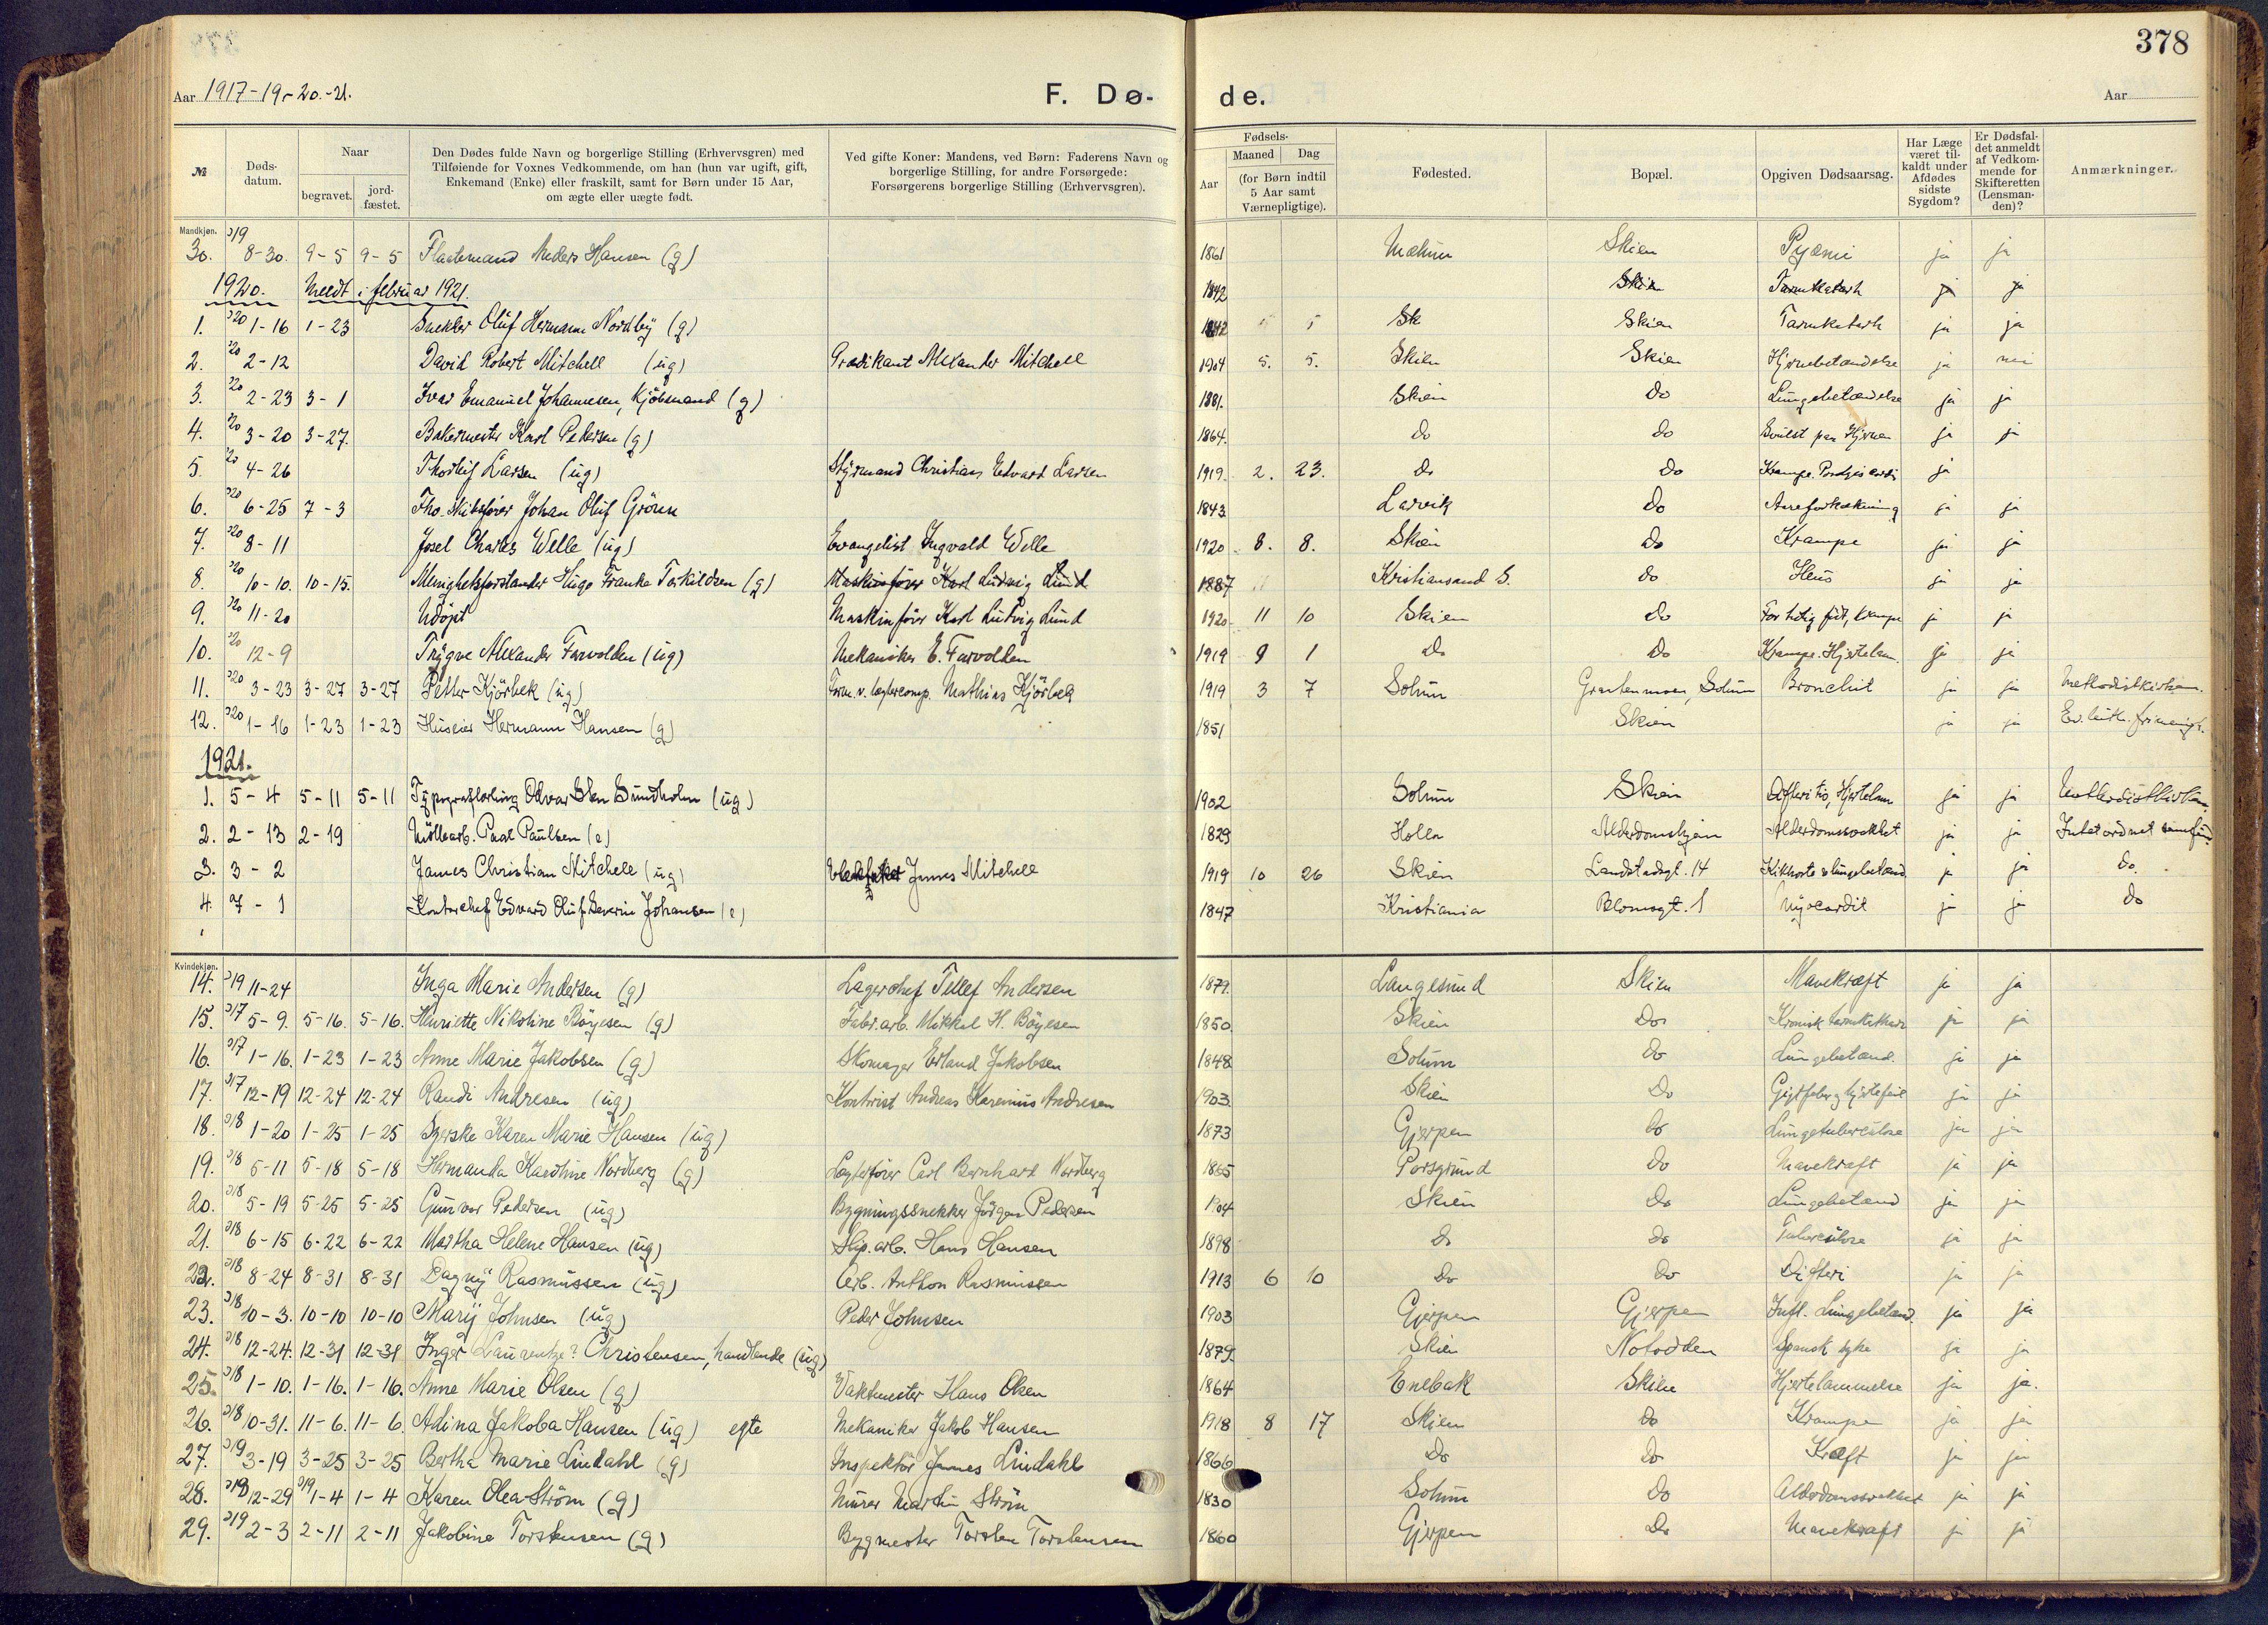 378
Aar 1917-19-20-21.
F. Dø- de.
Aar
№
Døds-datum.
Naar
begravet.
jord-fæstet.
Den Dødes fulde Navn og borgerlige Stilling (Erhvervsgren) med
Tilføiende for Voxnes Vedkommende, om han (hun var ugift, gift,
Enkemand (Enke) eller fraskilt, samt for Børn under 15 Aar,
om ægte eller uægte født.
Ved gifte Koner: Mandens, ved Børn: Faderens Navn og
borgerlige Stilling, for andre Forsørgede:
Forsørgerens borgerlige Stilling (Erhvervsgren).
Fødsels-
Aar
Maaned
Dag
(for Børn indtil
5 Aar samt
Værnepligtige).
Fødested.
Bopæl.
Opgiven Dødsaarsag.
Har Læge
været til-
kaldt under
Afdødes
sidste
Sygdom?
Er Dødsfal-
det anmeldt
af Vedkom-
mende for
Skifteretten
(Lensman-
den)?
Anmærkninger.
Mandkjøn.
30. 19 8-30. 9-5 9-5 Anders Hansen (g) 1861 Mælum Skien Pyæmi ja ja
1920. Meldt i februar 1921. 1842 Skien Tarmkatarh ja ja
1. 20 1-16 1-23 Snekker Oluf Hermann Nordby (g) 1842 Sk Skien Tarmkatarh ja ja
2. 20 2-12 David Robert Mitchell (ug) Prædikant Alexander Mitchell 1904 5. 5. Skien Skien Hjernebetændelse ja nei
3. 20 2-23 3-1 Ivar Emanuel Johannesen, Kjöbmand (g) 1881. Skien do Lungebetændelse ja ja
4. 20 3-20 3-27. Bakermester Karl Pedersen (g) 1864. do do Svulst paa Hjernen ja ja
5. 20 4-26 Thorleif Larsen (ug) Styrmand Christian Edvard Larsen 1919. 2. 23. Do Do Krampe. ja
6. 20 6-25 7-3 Johan Oluf Grönn 1843 Larvik Do Aareforkalkning ja ja
7. 20 8-11 Josel Charles Welle (ug) Evangelist Ingvald Welle 1920 8. 8. Skien do Krampe ja ja
8. 20 10-10. 10-15. Menighetsforstander Hugo Franke Torkildsen (g) Maskinfører Karl Ludvig Lund 1887 Kristiansand S. do ja ja
9. 20 11-20 Udöpt Maskinförer Karl Ludvig Lund 1920 11 10 Skien do For tidlig født, krampe ja ja
10. 20 12-9 Trygve Alexander Farvolden (ug) Mekaniker E. Farvolden 1919 9 1 Do Do Krampe. Hjertelam. ja ja
11. 20 3-23 3-27 3-27 Petter Kjörbek (ug) Mathias Kjörbek 1919 3 7 Solum Solum Bronchit ja ja Methodistkirken.
12. 20 1-16 1-23 1-23 Huseier Hermann Hansen (g) 1851 Skien ja ja Ev. luth. frimenigh.
1921.
1. 5-4 5-11 5-11 Typograflærling Odvar Sten Sundholm (ug) 1902 Solum Skien Difteritis, Hjertelam ja ja Methodistkirken.
2. 2-13 2-19 Paal Paulsen (e) 1829 Holla Alderdomshjem Alderdomssvækket ja ja Intet ordnet samfund.
3. 3-2 James Christian Mitchell (ug) James Mitchell 1919 10 26 Skien Landstadsgt. 14 Kikhoste & lungebetænd. ja ja do.
4. 7-1 Kontorchef Edvard Oluf Severin Johansen (e) 1847 Kristiania Blomsgt. 1 Myocardit ja ja do
Kvindekjøn.
14. 19 11-24 Inga Marie Andersen (g) Lagerchef Tellef Andersen 1879. Langesund Skien Mavekræft ja ja
15. 17 5-9. 5-16. 5-16. Henriette Nikoline Böyesen (g) Fabr.arb. Mikkel H. Böyesen 1850 Skien Do Kronisk tarmkatharr ja ja
16. 17 1-16. 1-23 1-23 Anne Marie Jakobsen (g) Skomager Erland Jakobsen 1848 Solum do Lungebetænd. ja ja
17. 17 12-19 12-24 12-24 Randi Andresen (ug) Kontorist Andreas Karenius Andresen 1903 Skien Do Gigtfeber og hjertefeil ja ja
18. 18 1-20 1-25 1-25 Syerske Karen Marie Hansen (ug) 1873 Gjerpen do Lungetuberculose ja ja
19. 18 5-11 5-18 5-18 Hermanda Karoline Nordberg (g) Lægterfører Carl Bernhard Nordberg 1855 Porsgrund do Mavekræft ja ja
20. 18 5-19 5-25 5-25 Gunvor Pedersen (ug) Bygningssnekker Jörgen Pedersen 1904 Skien Do Lungebetænd ja ja
21. 18 6-15 6-22 6-22 Martha Helene Hansen (ug) Slip.arb. Hans Hansen 1898 Do Do Tuberculose ja ja
22. 18 8-24 8-31 8-31 Dagny Rasmussen (ug) Arb. Anthon Rasmussen 1913 6 10 Do Do Difteri ja ja
23. 18 10-3. 10-10 10-10 Mary Johnsen (ug) Peder Johnsen 1903 Gjerpen Gjerpen Infl. Lungebetænd. ja ja
24. 18 12-24. 12-31 12-31 Inger Laurentze? Christensen, handlende (ug) 1879. Skien Notodden Spansk syke ja ja
25. 18 1-10. 1-16. 1-16. Anne Marie Olsen (g) Vaktmester Hans Olsen 1864 Enebak Skien Hjertelammelse ja ja.
26. 18 10-31. 11-6. 11-6 Adina Jakoba Hansen (ug) egte Mekaniker Jakob Hansen 1918 8 17 Skien Do Krampe ja ja
27. 19 3-19 3-25 3-25 Bertha Marie Lindahl (g) Inspektör James Lindahl 1866 Do Do Kræft ja ja
28. 18 12-29 19 1-4 1-4 Karen Olea Ström (g) Murer Martin Ström 1830 Solum Do Alderdomssvækket ja ja
29. 19 2-3 2-11 2-11 Jakobine Torstensen (g) Bygmester Torsten Torstensen 1860 Gjerpen Do Mavekræft ja ja